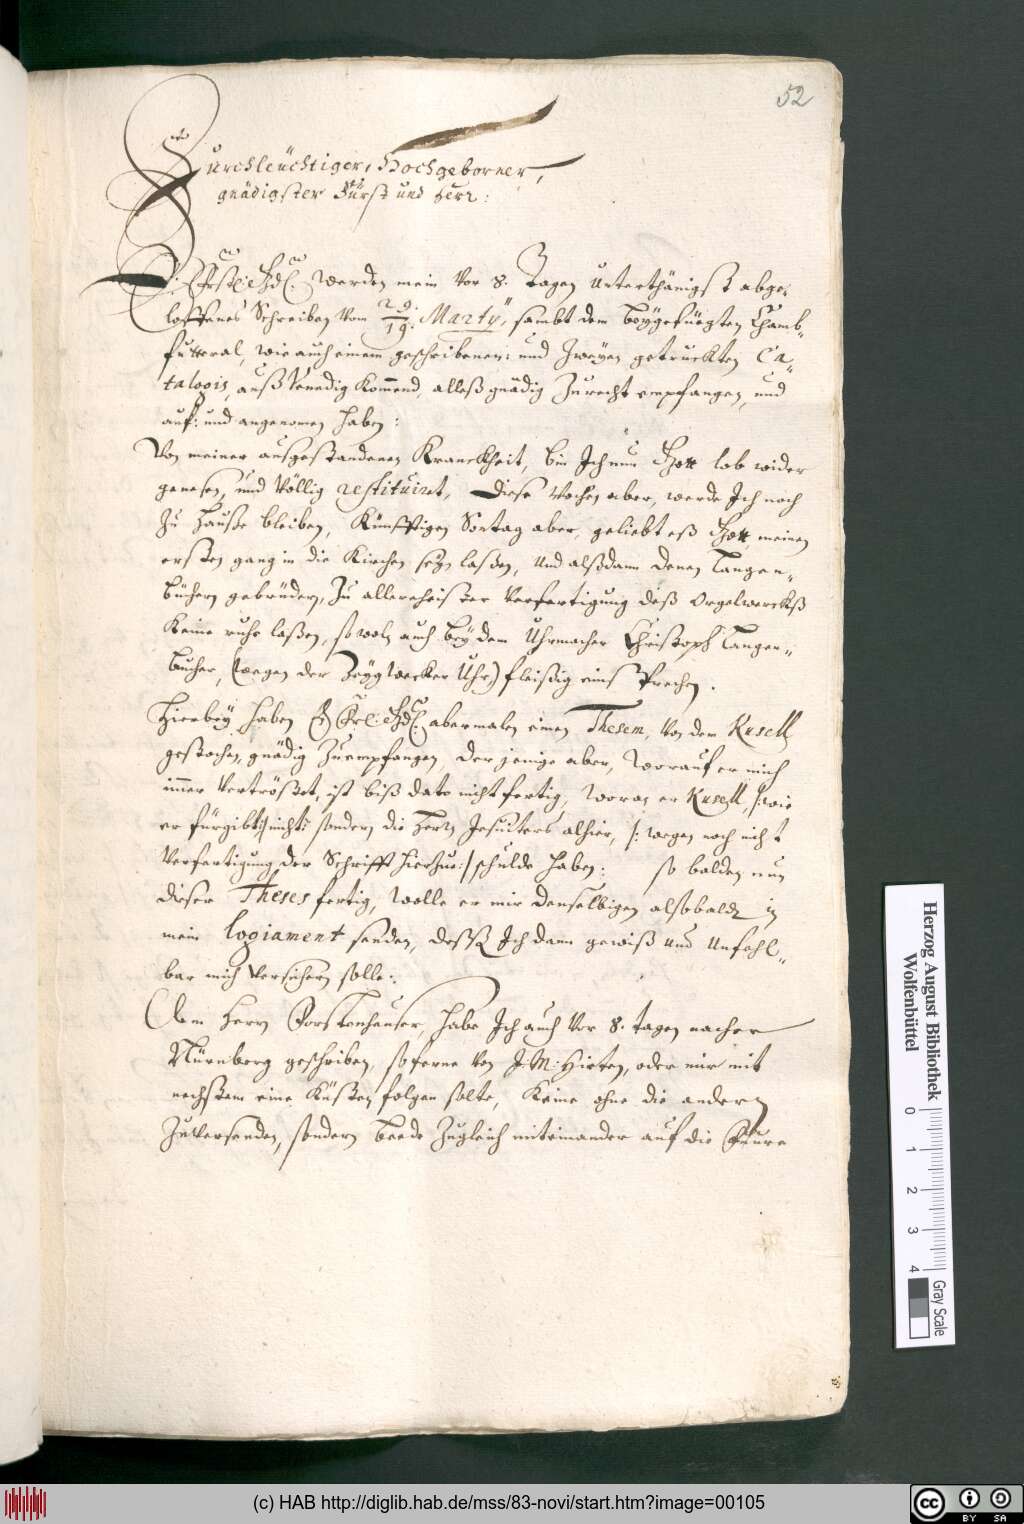 52
Durchleüchtiger, Hochgeborner,
gnädigster Fürst und Herr:
E: Frstl: Gnd: werden mein vor 8. Tagen unterthänigst abge„
loffenes Schreiben vom 29./19. Marty, sambt dem beygefüegten Chamb„
futteral, wie auch einem geschribenen: und zweyen getruckten Ca„
talogis, auß Venedig kommend, alleß gnädig zu recht empfangen, und
auf: und angenomen haben:
Von meiner ausgestandenen Kranckheit, bin Ich nun Gott lob wider
genesen, und völlig restituirt, Diese Wochen aber, werde Ich noch
zu Hauße bleiben, Künfftigen Sontag aber, geliebt eß Gott, meinen
ersten gang in die Kirchen seyn laßen, und alßdann denen Langen„
büchern gebrüdern, zu allerehister Verfertigung deß Orgelwercks
Keine ruhe laßen, so wol auch bey dem Uhrmacher Christoph Langen„
bucher, (wegen der Uhr) fleißig einsprechen.
Hierbey haben E Frl: Gnd: abermalen einen Thesem, von dem Kusell
gestochen, gnädig zu empfangen, der jenige aber, worauf er mich
immer vertröstet, ist biß dato nicht fertig, woran er Kusell, /:wie
er fürgibt:/ nicht sondern die Herrn Jesuiters alhier, /: wegen noch nicht
Verfertigung der Schrifft hierzue:/ schulde haben: so balden nun
dieser Theses fertig, wolle er mir denselbigen alsobaldt in
mein logiament senden, deßß Ich dann gewiß und unfehl„
bar mich versichern solle:
Dem Herrn Forstenhauser, habe Ich auch vor 8. tagen nacher
Nürnberg geschriben, soferne von J: M: Hirten, oder mir mit
nechstem eine Küsten folgen solte, Keine ohne die andern
zu versenden, sondern beede zugleich miteinander auf die Fuhre
Herzog August Bibliothek
Wolfenbüttel
0 1 2 3 4
Gray Scale
(c) HAB http://diglib.hab.de/mss/83-novi/start.htm?image=00105
cc BY SA